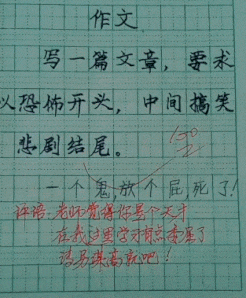 作文
写一篇文章，要求
以恐怖开头，中间搞笑
悲剧结尾。
一个鬼放个屁死了！
评语：老师觉得你是个天才
在我这里学习有点委屈了
请另谋高就吧！